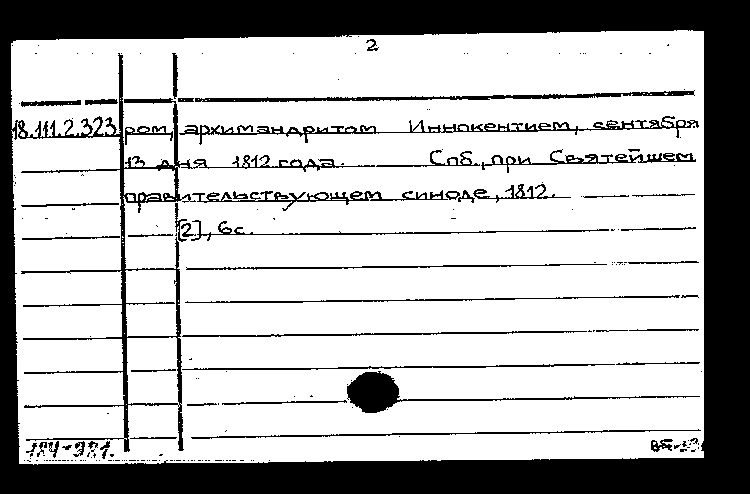 2
18.111.2.323 ром, архимандритом Иннокентием, сентября
13 дня 1812 года. Спб., при Святейшем
правительствующем синоде, 1812.
[2], 6с.
184-981.